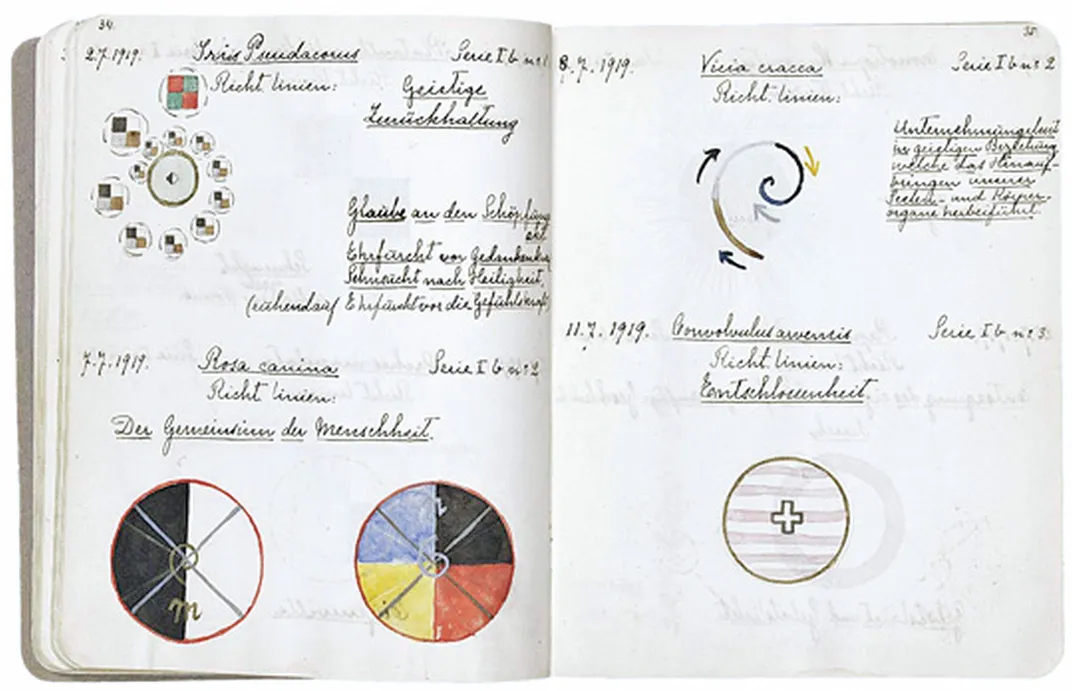 34.
2.7.1919. Iris Pseudacorus Serie I b nr 1.
Richt linien: Geistige
Zurückhaltung
Glaube an den Schöpfungs
Ehrfurcht vor Gedankenkra
Sehnsucht nach Heiligkeit.
Ehrfurcht vor die Gefühlskraft
7.7.1919. Rosa canina Serie I b nr 2
Richt linien:
Der Gemeinsinn der Menschheit.
m
35.
8.7.1919. Vicia cracca Serie I b nr 2
Richt linien:
Unternehmungslust
in geistigen Beziehung
welche das Hinauf-
bringen unserer
Seelen- und Körper-
organe herbeiführt.
11.7.1919. Convolvulus arvensis Serie I b nr 3.
Richt linien:
Entschlossenheit.